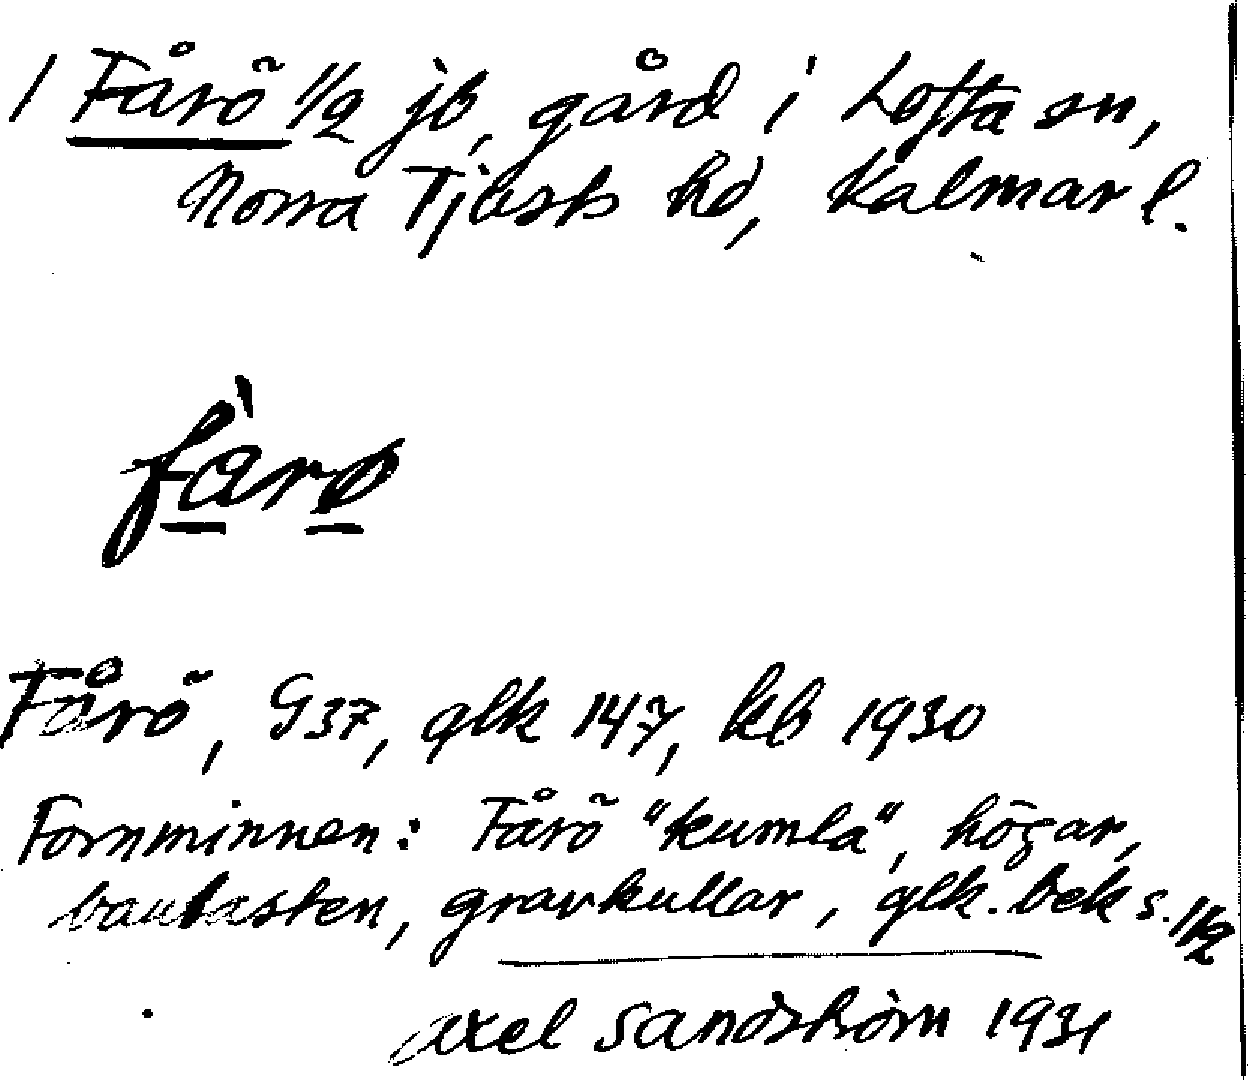 1 Fårö 1/2 jb, gård i Lofta sn,
Norra Tjusts hd, Kalmar l.
fàrø
Fårö, G37, glk 147, kb 1930
Fornminnen: Fårö "kumla", högar,
bautasten, gravkullar, glk. bek s. 112
Axel Sandström 1931